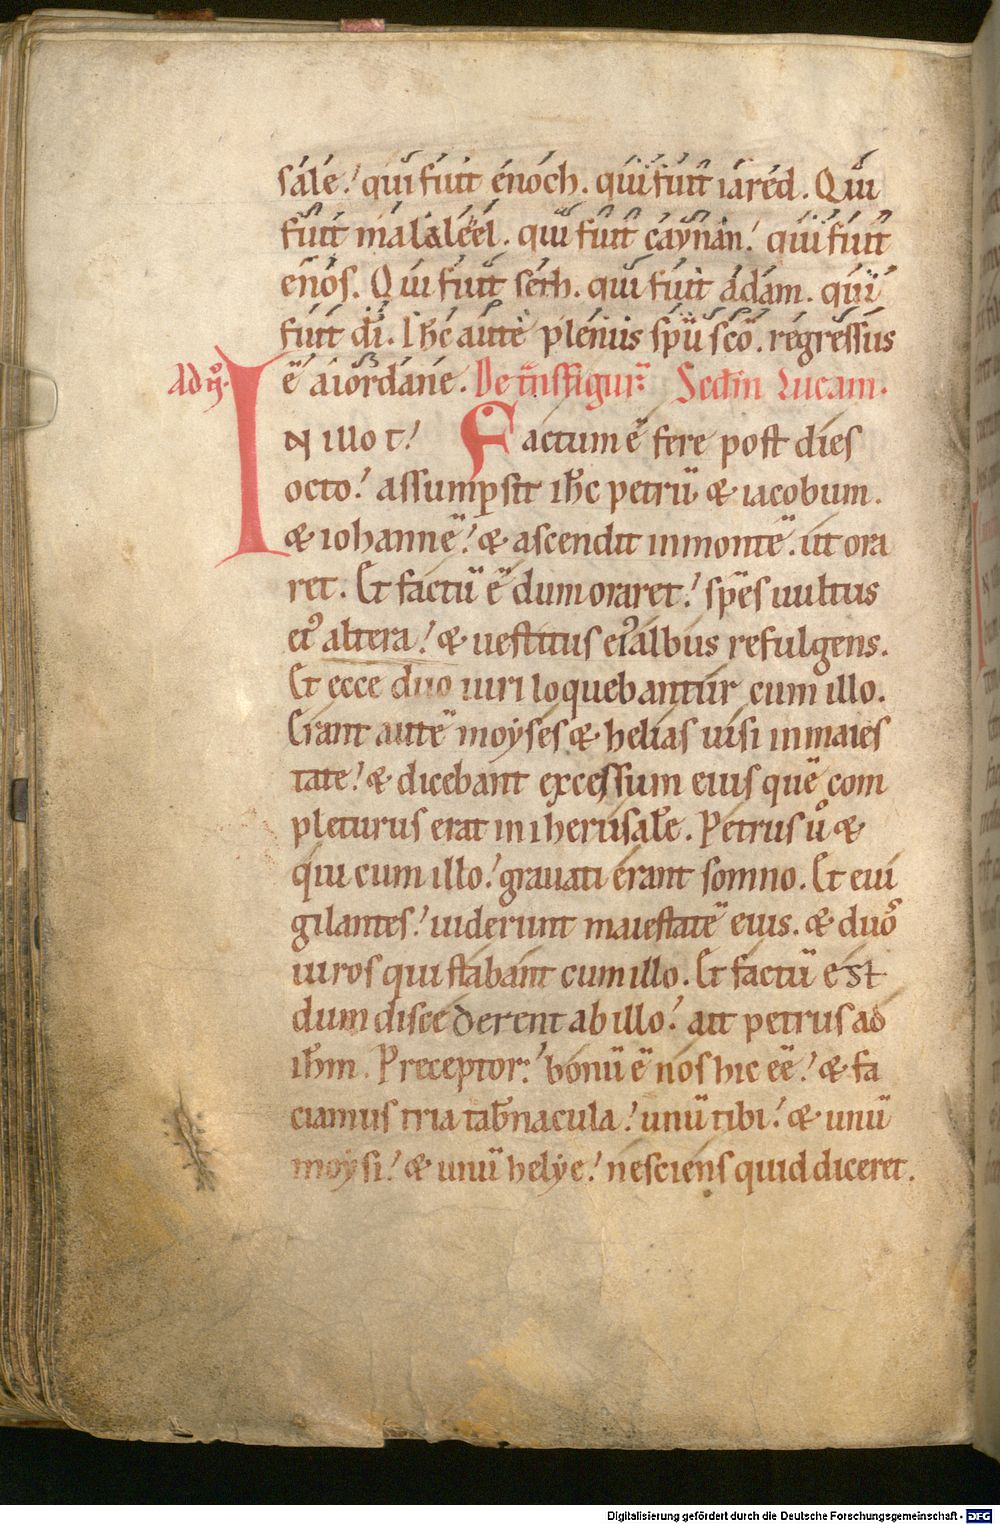 sale! qui fuit enoch. qui fuit iared. Qui
fuit malaleel. qui fuit caynan! qui fuit
enos. Qui fuit seth. qui fuit adam. qui
fuit dī. Ihc̄ autē plenus spū scō. regressus
ē a iordane. De t̄nsfigur̄ Scd̄m Lucam.
IN illo t̄! Factum ē fere post dies
octo! assumpsit ih̄c petrū & iacobum.
& iohannē! & ascendit inmontē. ut ora
ret. Et factū ē dum oraret! spēs uultus
ei᾽ altera! & uestitus ei᾽ albus refulgens.
Et ecce duo uiri loquebantur cum illo.
Erant autē moyses & helias uisi inmaies
tate! & dicebant excessum eius quē com
pleturus erat in iherusalē. Petrus uº &
qui cum illo! grauati erant somno. Et eui
gilantes! uiderunt maiestatē eius. & duos
uiros qui stabant cum illo. Et factū est
dum discederent ab illo! ait petrus ad
ih̄m. Preceptor! bonū ē nos hic eē! & fa
ciamus tria tab̄nacula! unū tibi! & unū
moysi! & unū helye! nesciens quid diceret.